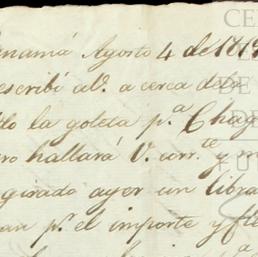 namá Agosto 4 de 1819
escribí aV. a cerca dela
la goleta p.ª Chag
hallará V. corr.te y
girado ayer un libra
p.r el importe y